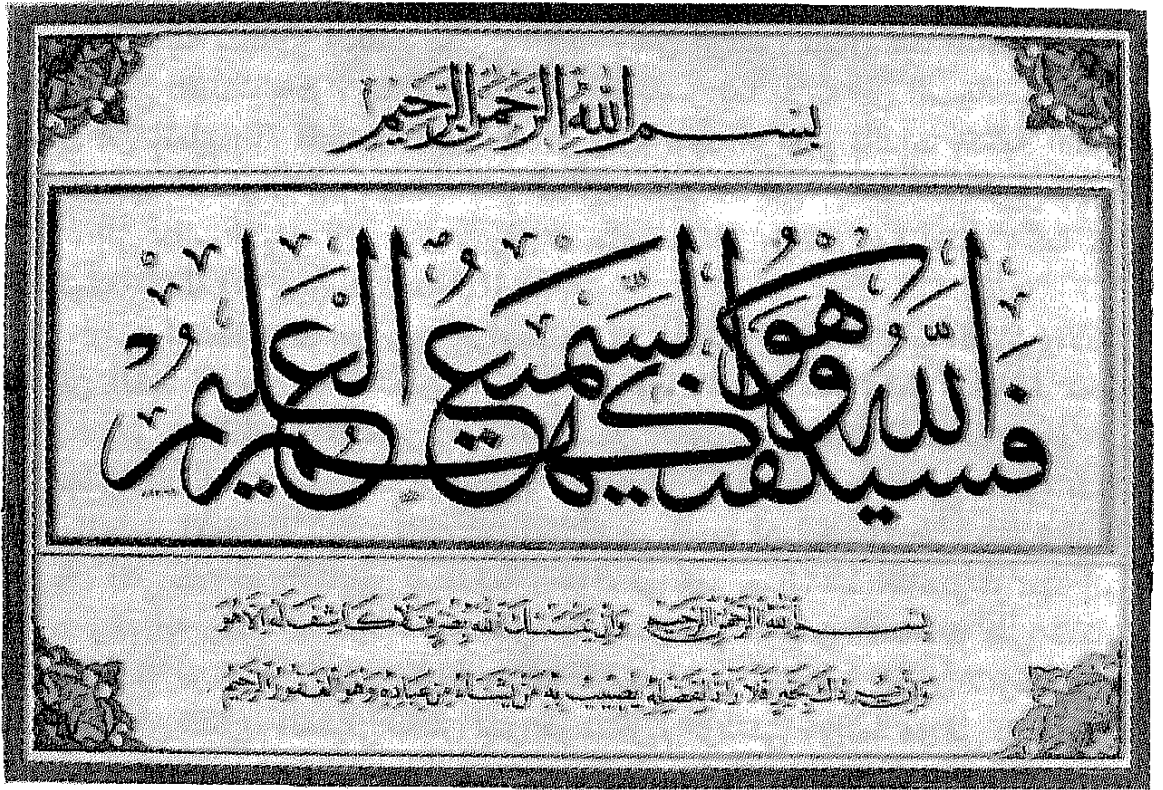 بسم الله الرحمن الرحيم
فسيكفيكهم الله وهو السميع العليم
بسم الله الرحمن الرحيم وإن يمسسك الله بضر فلا كاشف له إلا هو
وإن يردك بخير فلا راد لفضله يصيب به من يشاء من عباده وهو الغفور الرحيم